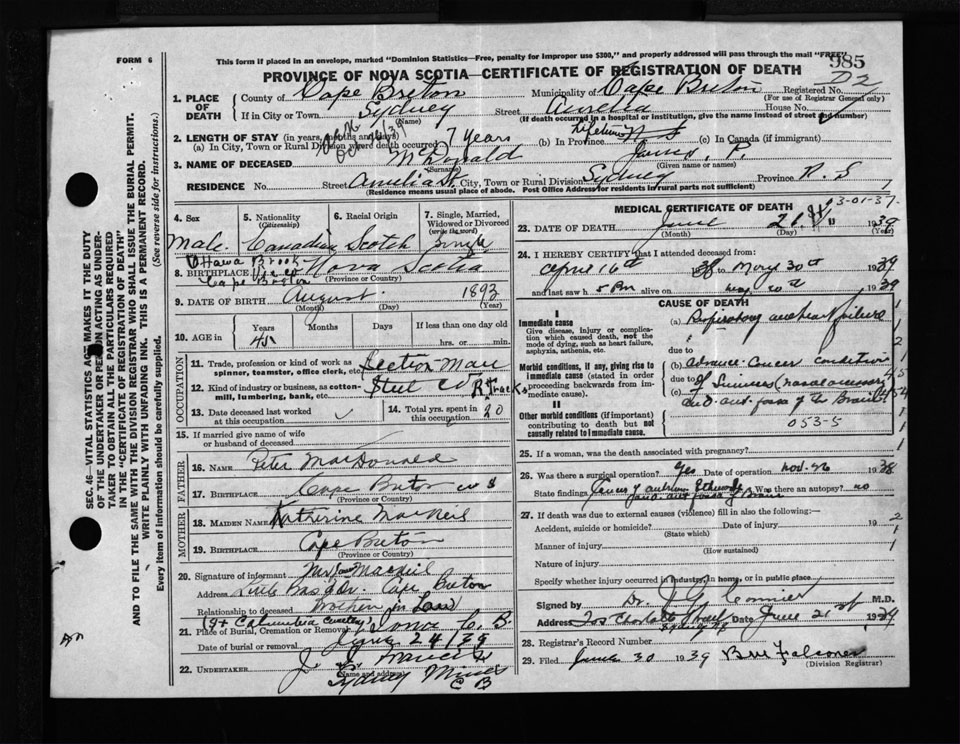 FORM 6
This form if placed in an envelope, marked "Dominion Statistics—Free, penalty for improper use $300," and properly addressed will pass through the mail "FREE"
985
PROVINCE OF NOVA SCOTIA—CERTIFICATE OF REGISTRATION OF DEATH
1. PLACE OF DEATH
County of Cape Breton Municipality of Cape Breton Registered No.
(For use of Registrar General only)
If in City or Town Sydney Street House No.
(Name) (If death occurred in a hospital or institution, give the name instead of street and number)
2. LENGTH OF STAY (in years, months and days)
(a) In City, Town or Rural Division where death occurred 7 years (b) In Province Lifetime (c) In Canada (if immigrant)
3. NAME OF DECEASED McDonald James, P.
(Surname) (Given name or names)
RESIDENCE No. Street Amelia St. City, Town or Rural Division Sydney Province N. S
(Residence means usual place of abode. Post Office Address for residents in rural parts not sufficient)
4. Sex
Male.
5. Nationality (Citizenship)
Canadian
6. Racial Origin
Scotch
7. Single, Married, Widowed or Divorced (write the word)
Single
8. BIRTHPLACE Ottawa Brook Cape Breton Nova Scotia
(Province or Country)
9. DATE OF BIRTH August 1893
(Month) (Day) (Year)
10. AGE in Years Months Days If less than one day old
45 hrs. or min.
OCCUPATION
11. Trade, profession or kind of work as spinner, teamster, office clerk, etc. Section-man
12. Kind of industry or business, as cotton-mill, lumbering, bank, etc. Steel Co R. Tracks
13. Date deceased last worked at this occupation
14. Total yrs. spent in this occupation 20
15. If married give name of wife or husband of deceased
FATHER
16. NAME Peter MacDonald
17. BIRTHPLACE Cape Breton N S
(Province or Country)
MOTHER
18. MAIDEN NAME Katherine MacNeil
19. BIRTHPLACE Cape Breton
(Province or Country)
20. Signature of informant MacNeil
Address Cape Breton
Relationship to deceased Brother in Law
(St Columba Cemetery)
21. Place of Burial, Cremation or Removal Iona C. B.
Date of burial or removal June 24/39
22. UNDERTAKER J.
(Name and address)
Sydney Mines C B
MEDICAL CERTIFICATE OF DEATH
3-01-37.
23. DATE OF DEATH June 21 1939
(Month) (Day) (Year)
24. I HEREBY CERTIFY that I attended deceased from:
April 16th 38 to May 30th 1939
and last saw h alive on 1939
CAUSE OF DEATH
I
Immediate cause
Give disease, injury or complication which caused death, not the mode of dying, such as heart failure, asphyxia, asthenia, etc.
(a) Respiratory and heart failure
due to
Morbid conditions, if any, giving rise to immediate cause (stated in order proceeding backwards from immediate cause).
(b) Advance Cancer condition
due to
(c)
II
Other morbid conditions (if important) contributing to death but not causally related to immediate cause.
053-5
25. If a woman, was the death associated with pregnancy?
26. Was there a surgical operation? Yes Date of operation Nov. 26 1938
State findings Was there an autopsy? no
27. If death was due to external causes (violence) fill in also the following:
Accident, suicide or homicide? Date of injury 19
(State which)
Manner of injury
(How sustained)
Nature of injury
Specify whether injury occurred in industry, in home, or in public place
Signed by Dr. J. G. Cormier M.D.
Address 205 Charlotte Street Sydney Date June 21st 1939
28. Registrar's Record Number
29. Filed June 30 1939 B M Falconer
(Division Registrar)
SEC. 46—VITAL STATISTICS ACT MAKES IT THE DUTY OF THE UNDERTAKER OR PERSON ACTING AS UNDERTAKER TO OBTAIN ALL THE PARTICULARS REQUIRED IN THE "CERTIFICATE OF REGISTRATION OF DEATH" AND TO FILE THE SAME WITH THE DIVISION REGISTRAR WHO SHALL ISSUE THE BURIAL PERMIT.
WRITE PLAINLY WITH UNFADING INK. THIS IS A PERMANENT RECORD.
Every item of information should be carefully supplied. (See reverse side for instructions.)